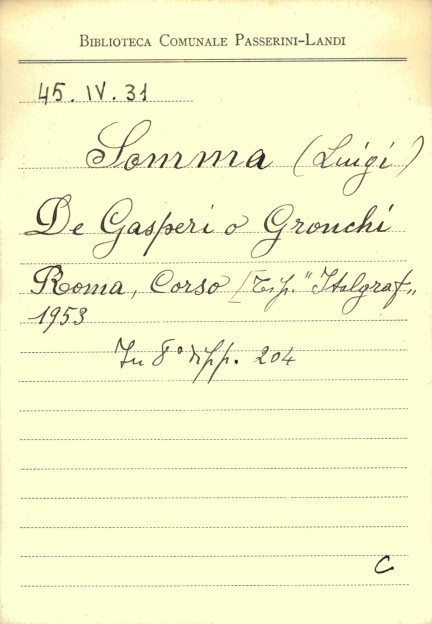 BIBLIOTECA COMUNALE PASSERINI-LANDI
45. IV. 31
Somma (Luigi)
De Gasperi o Gronchi
Roma, Corso (Tip. "Italgraf„
1953
In 8° di pp. 204
C